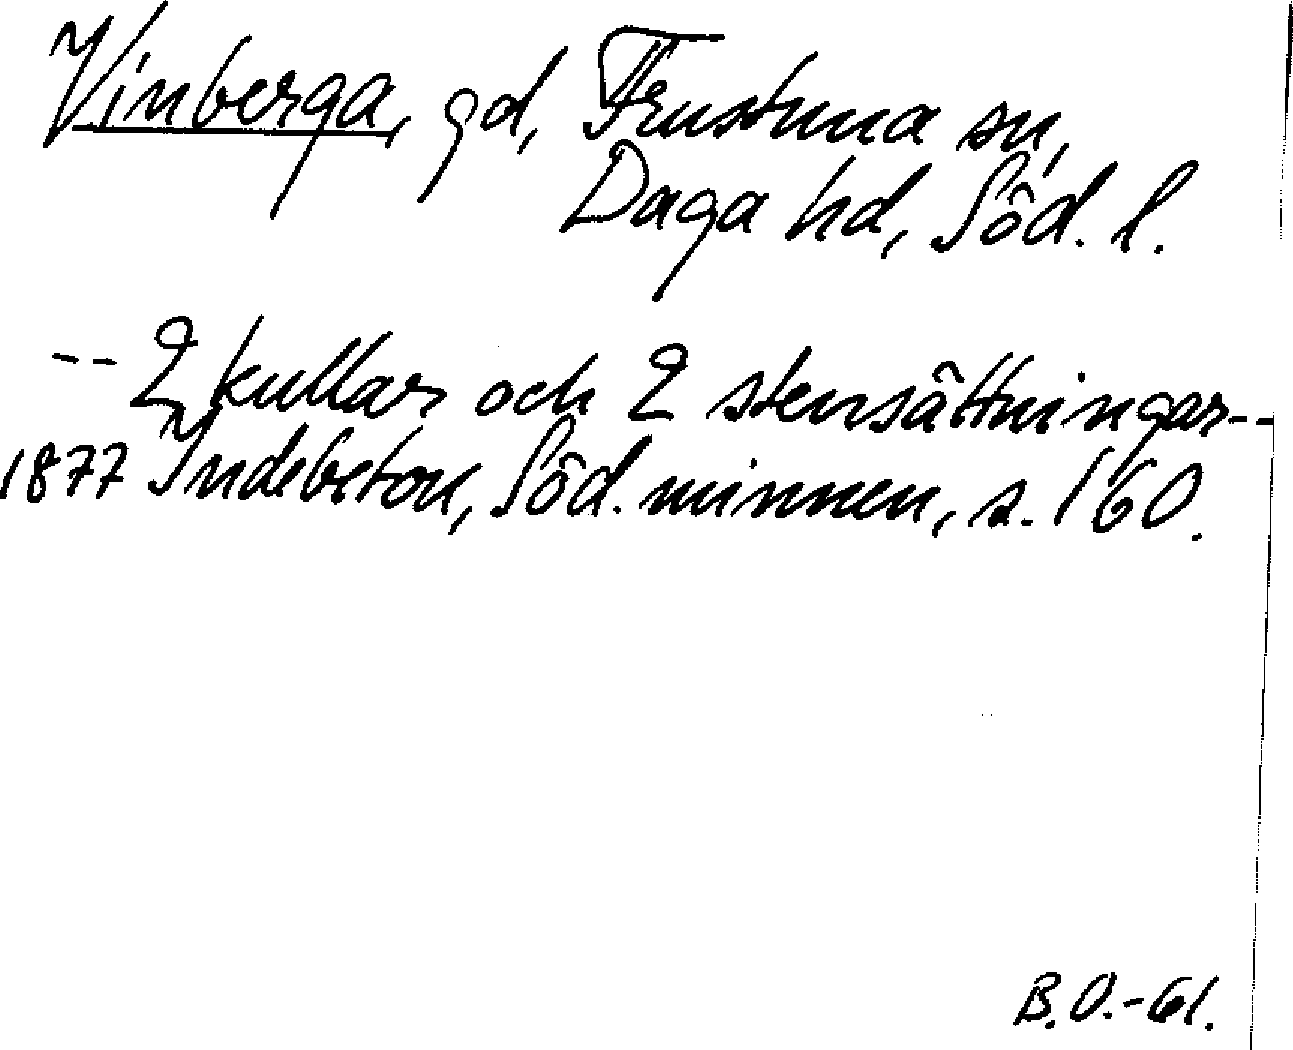 Vinberga, gd, Frustuna sn,
Daga hd, Söd. l.
-- 2 kullar och 2 stensättningar--
1877 Indebetou, Söd. minnen, s. 160.
B.O.-61.